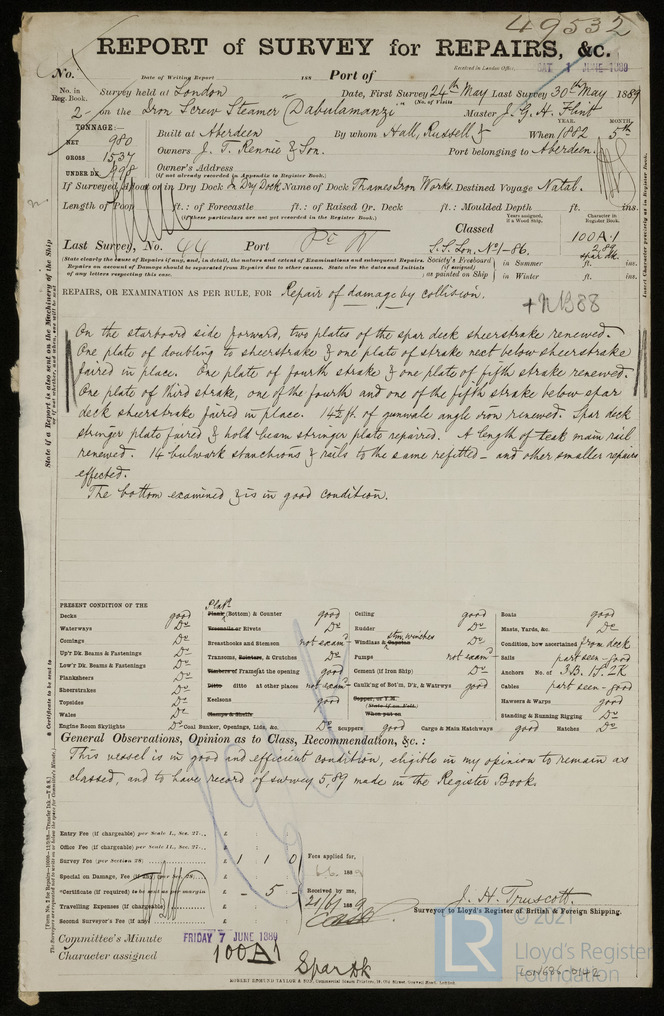 49532
REPORT of SURVEY for REPAIRS, &c.
No. Date of Writing Report 188 Port of Received in London Office, SAT 1 JUNE 1889
No. in Reg. Book. Survey held at London Date, First Survey 24th May Last Survey 30th May 1889
(No. of Visits
2 - on the Iron Screw Steamer "Dabulamanzi" Master J. G. H. Flint
TONNAGE:— YEAR. MONTH.
NET 980 Built at Aberdeen By whom Hall, Russell & When 1882 5th
GROSS 1537 Owners J. T. Rennie & Son. Port belonging to Aberdeen.
UNDER DK 898 Owner's Address
(if not already recorded in Appendix to Register Book.)
If Surveyed Afloat or in Dry Dock In Dry Dock Name of Dock Thames Iron Works. Destined Voyage Natal.
Length of Poop ft.: of Forecastle ft.: of Raised Qr. Deck ft.: Moulded Depth ft. ins.
(if these particulars are not yet recorded in the Register Book.)
Years assigned, if a Wood Ship. Character in Register Book.
Classed 100A.1
Last Survey, No. 44 Port S.S. Lon. No.1-86.
spar dk
(State clearly the cause of Repairs if any, and, in detail, the nature and extent of Examinations and subsequent Repairs. Society's Freeboard in Summer ft. ins.
Repairs on account of Damage should be separated from Repairs due to other causes. State also the dates and Initials (if assigned)
of any letters respecting this case. as painted on Ship in Winter ft. ins.
REPAIRS, OR EXAMINATION AS PER RULE, FOR Repair of damage by collision.
+NB88
On the starboard side forward, two plates of the spar deck sheerstrake renewed.
One plate of doubling to sheerstrake & one plate of strake next below sheerstrake
faired in place. One plate of fourth strake & one plate of fifth strake renewed.
One plate of third strake, one of the fourth and one of the fifth strake below spar
deck sheerstrake faired in place. 14½ ft. of gunwale angle iron renewed. Spar deck
stringer plate faired & hold beam stringer plate repaired. A length of teak main rail
renewed. 14 bulwark stanchions & rails to the same refitted - and other smaller repairs
effected.
The bottom examined & is in good condition.
PRESENT CONDITION OF THE
Decks good
Waterways Do
Comings Do
Up'r Dk. Beams & Fastenings Do
Low'r Dk. Beams & Fastenings Do
Planksheers Do
Sheerstrakes Do
Topsides Do
Wales Do
Engine Room Skylights Do
Plank (Bottom) & Counter good
Treenails or Rivets Do
Breasthooks and Stemson not exam'd
Transoms, Pointers, & Crutches Do
Timbers of Frame at the opening good
Ditto ditto at other places not exam'd
Keelsons good
Clamps & Shelfs
Coal Bunker, Openings, Lids, &c. Do
Ceiling good
Rudder Do
Windlass & Capstan stm. winches Do
Pumps not exam'd
Cement (if Iron Ship) Do
Caulk'ng of Bot'm, D'k, & Watrwys good
Copper, or Y.M.
(State if on Felt.)
When put on
Scuppers good Cargo & Main Hatchways good Hatches Do
Boats good
Masts, Yards, &c. Do
Condition, how ascertained from deck
Sails part seen - good
Anchors No. of 3B. 1S. 2K
Cables part seen - good
Hawsers & Warps good
Standing & Running Rigging Do
General Observations, Opinion as to Class, Recommendation, &c.:
This vessel is in good and efficient condition, eligible in my opinion to remain as
classed, and to have record of survey 5,89 made in the Register Book.
Entry Fee (if chargeable) per Scale I., Sec. 27... £
Office Fee (if chargeable) per Scale II., Sec. 27... £
Survey Fee (per Section 28) £ 1 : 1 : 0 Fees applied for,
Special on Damage, Fee (if any) (per Sec. 28) £ 188
*Certificate (if required) to be sent as per margin £ - 5 - Received by me,
Travelling Expenses (if chargeable) £ 21/6/1889
Second Surveyor's Fee (if any) £
J. H. Truscott.
Surveyor to Lloyd's Register of British & Foreign Shipping.
Committee's Minute FRIDAY 7 JUNE 1889
Character assigned 100A1
Spar Dk
ROBERT EDMUND TAYLOR & SON, Commercial Steam Printers, 19, Old Street, Goswell Road, London.
State if a Report is also sent on the Machinery of the Ship
* Certificate to be sent to
© 2021
LR Lloyd's Register
Foundation
LON686-0142